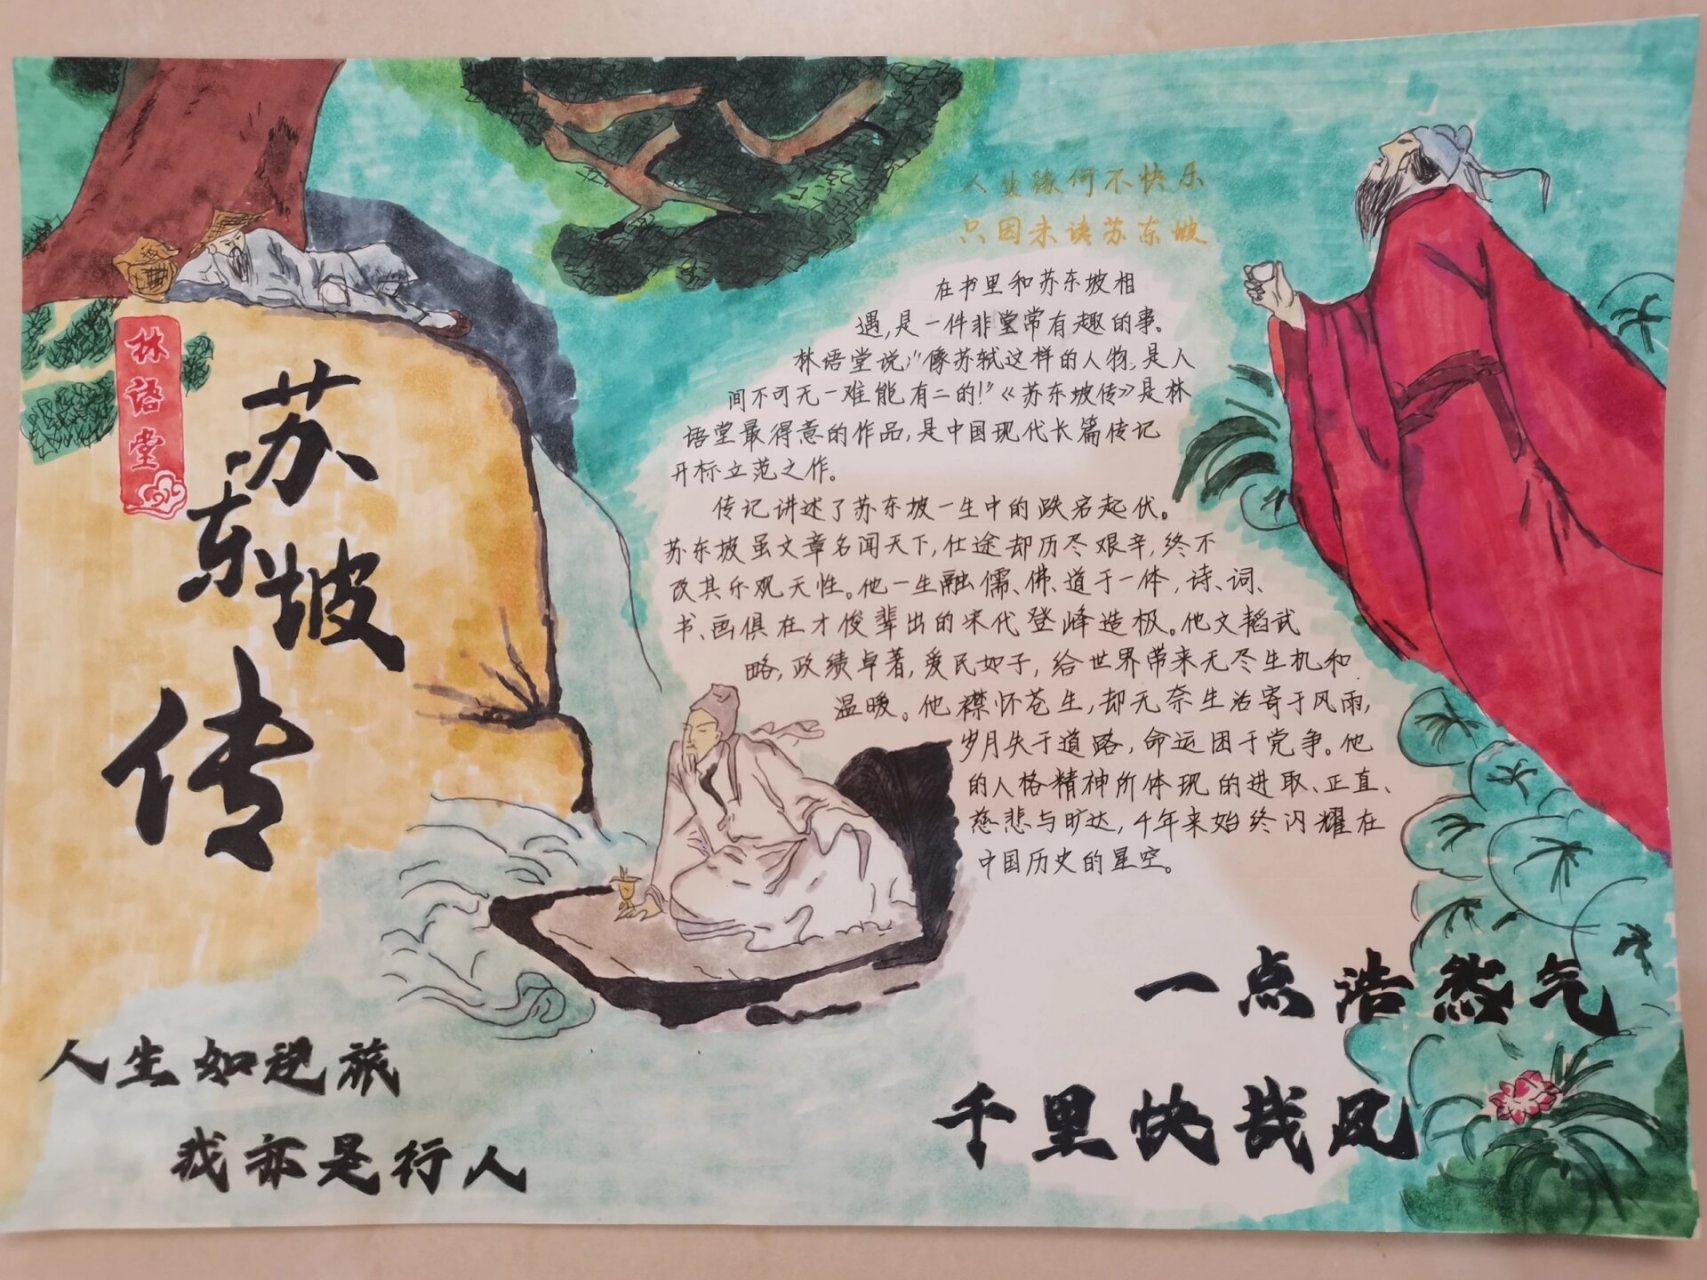 林语堂
苏东坡传
人生缘何不快乐
只因未读苏东坡
在书里和苏东坡相
遇,是一件非堂常有趣的事。
林语堂说:“像苏轼这样的人物,是人
间不可无一难能有二的!”《苏东坡传》是林
语堂最得意的作品,是中国现代长篇传记
开标立范之作。
传记讲述了苏东坡一生中的跌宕起伏。
苏东坡虽文章名闻天下,仕途却历尽艰辛,终不
改其乐观天性。他一生融儒、佛、道于一体,诗、词、
书、画俱在才俊辈出的宋代登峰造极。他文韬武
略,政绩卓著,爱民如子,给世界带来无尽生机和
温暖。他襟怀苍生,却无奈生活寄于风雨,
岁月失于道路,命运困于党争。他
的人格精神所体现的进取、正直、
慈悲与旷达,千年来始终闪耀在
中国历史的星空。
一点浩然气
千里快哉风
人生如逆旅
我亦是行人